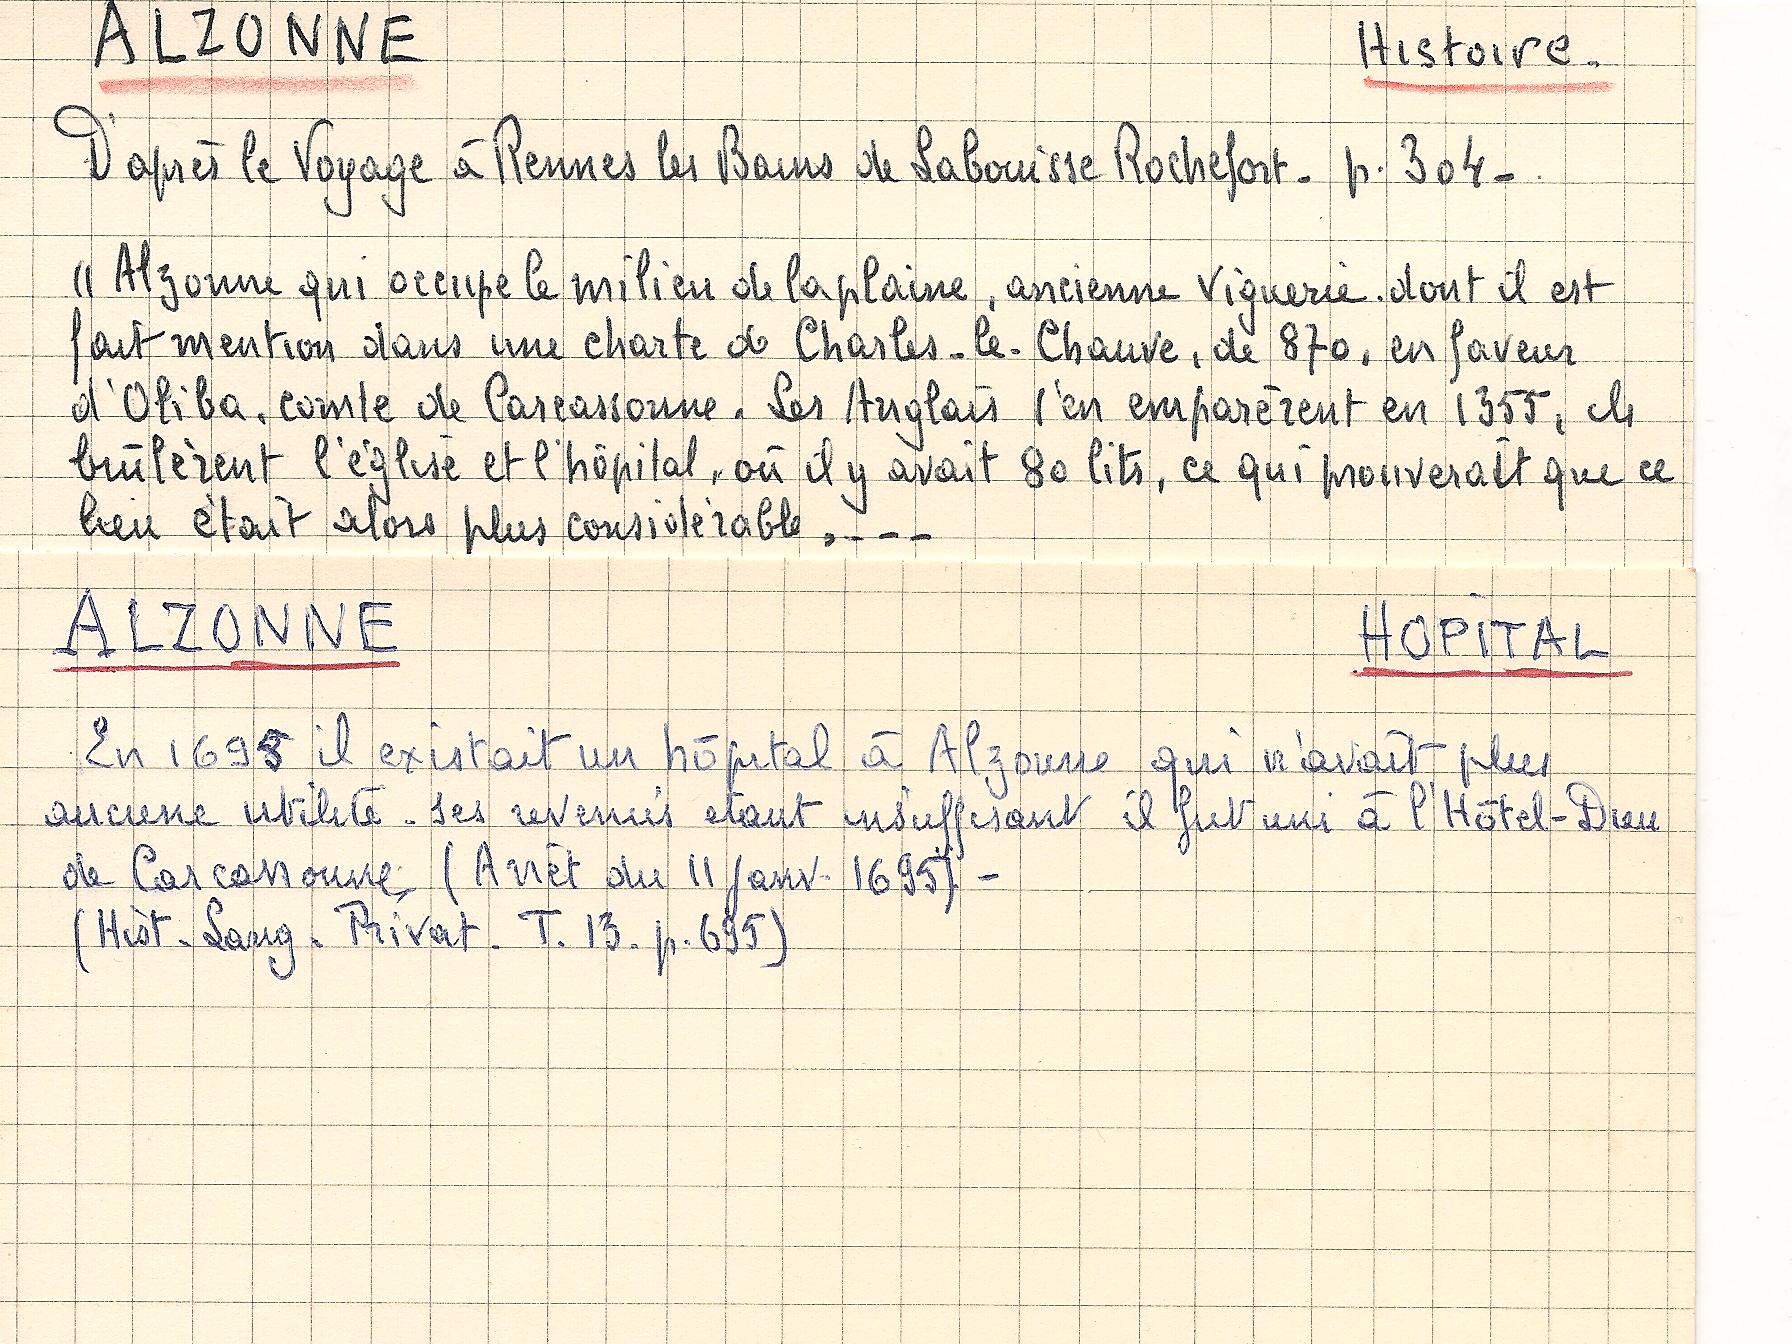 ALZONNE Histoire.
D'après le Voyage à Rennes les Bains de Labouisse Rochefort - p. 304 -
" Alzonne qui occupe le milieu de la plaine, ancienne viguerie. dont il est
fait mention dans une charte de Charles-le-Chauve, de 870, en faveur
d'Oliba, comte de Carcassonne. Les Anglais s'en emparèrent en 1355, ils
brûlèrent l'église et l'hôpital, où il y avait 80 lits, ce qui prouverait que ce
lieu était alors plus considérable, ----
ALZONNE HOPITAL
En 1695 il existait un hôpital à Alzonne qui n'avait plus
aucune utilité. ses revenus étant insuffisant il fut uni à l'Hôtel-Dieu
de Carcassonne (Arrêt du 11 Janv. 1695) -
(Hist. Lang. Privat. T. 13. p. 695)